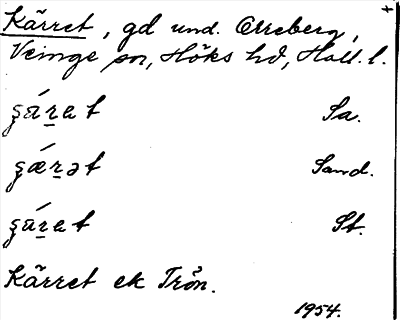 Kärret, gd und. Orreberg,
Veinge sn, Höks hd, Hall. l.
ʂárat Sa.
ʂǽrət Sand.
ʂárat St.
Kärret ek Trön.
1954.